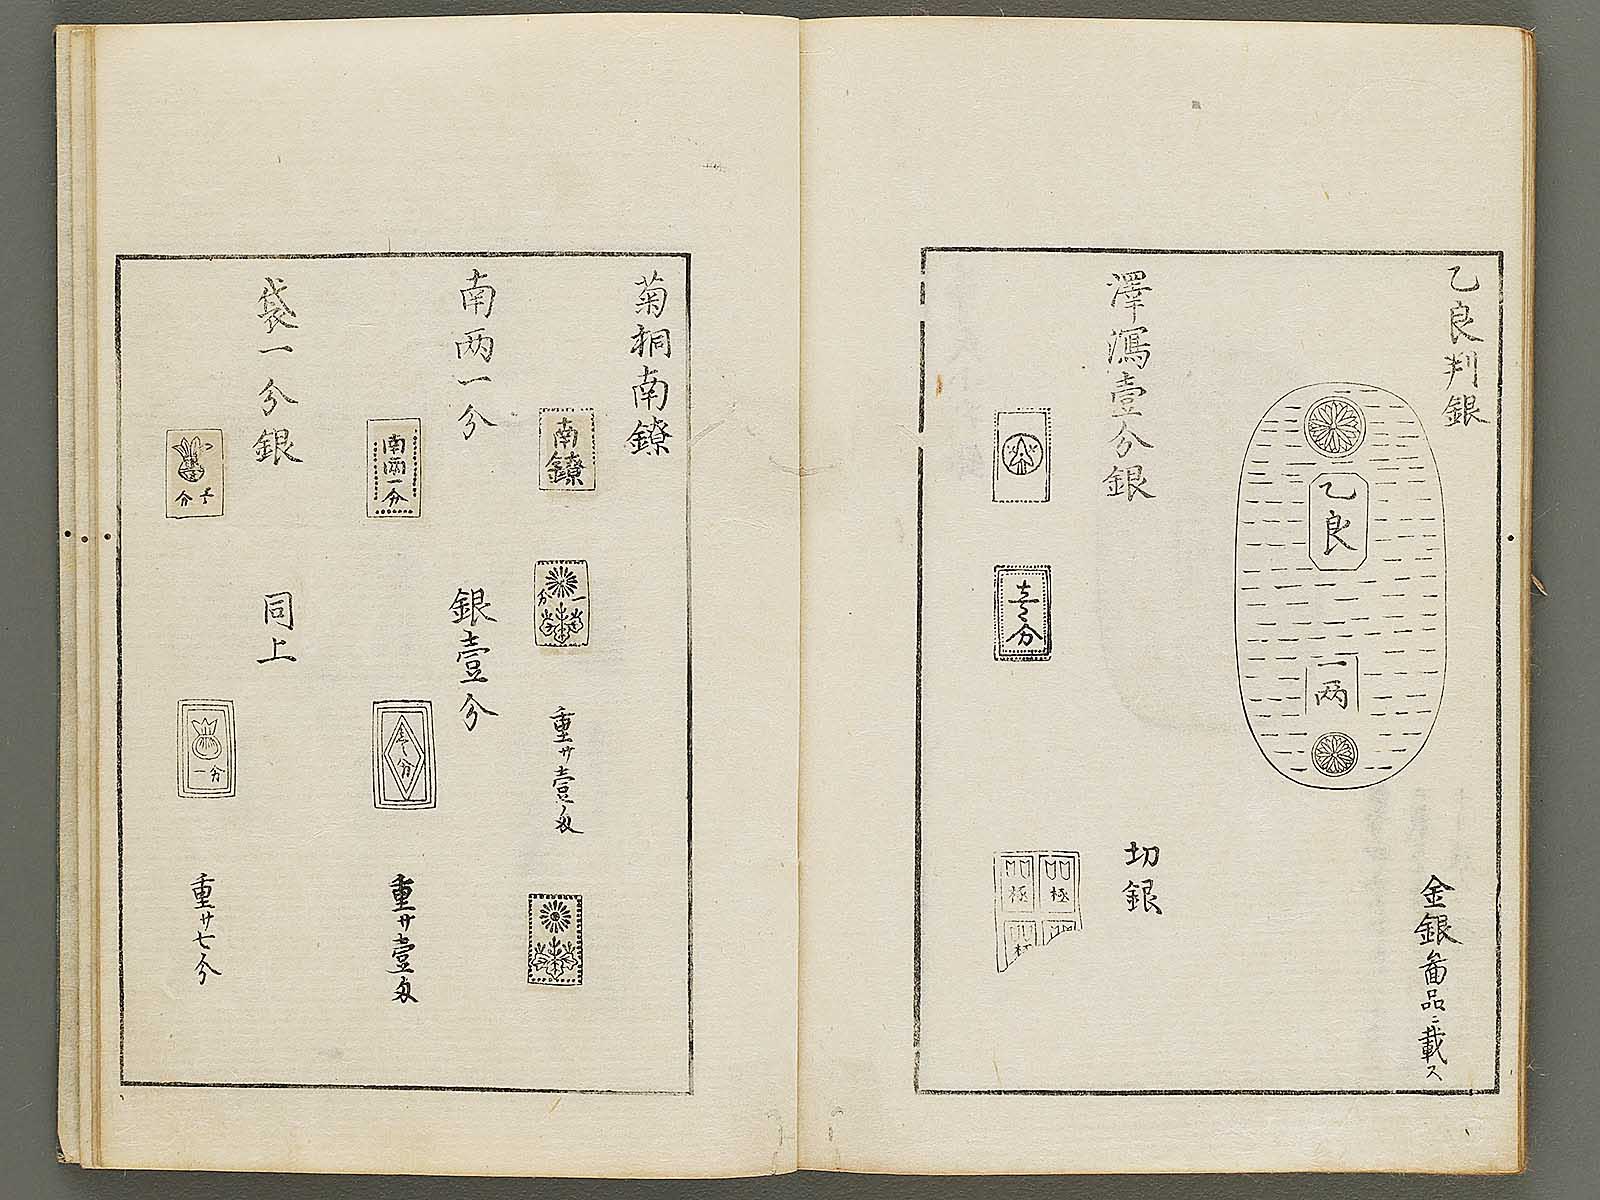 乙良判銀
乙良
一両
金銀啚品ニ載ス
澤瀉壹分銀
壱分
切銀
極
極
極
菊桐南鐐
南鐐
一分
重サ壹匁
南両一分
南両一分
銀壹分
壱分
重サ壹匁
袋一分銀
壱分
同上
一分
重サ七分